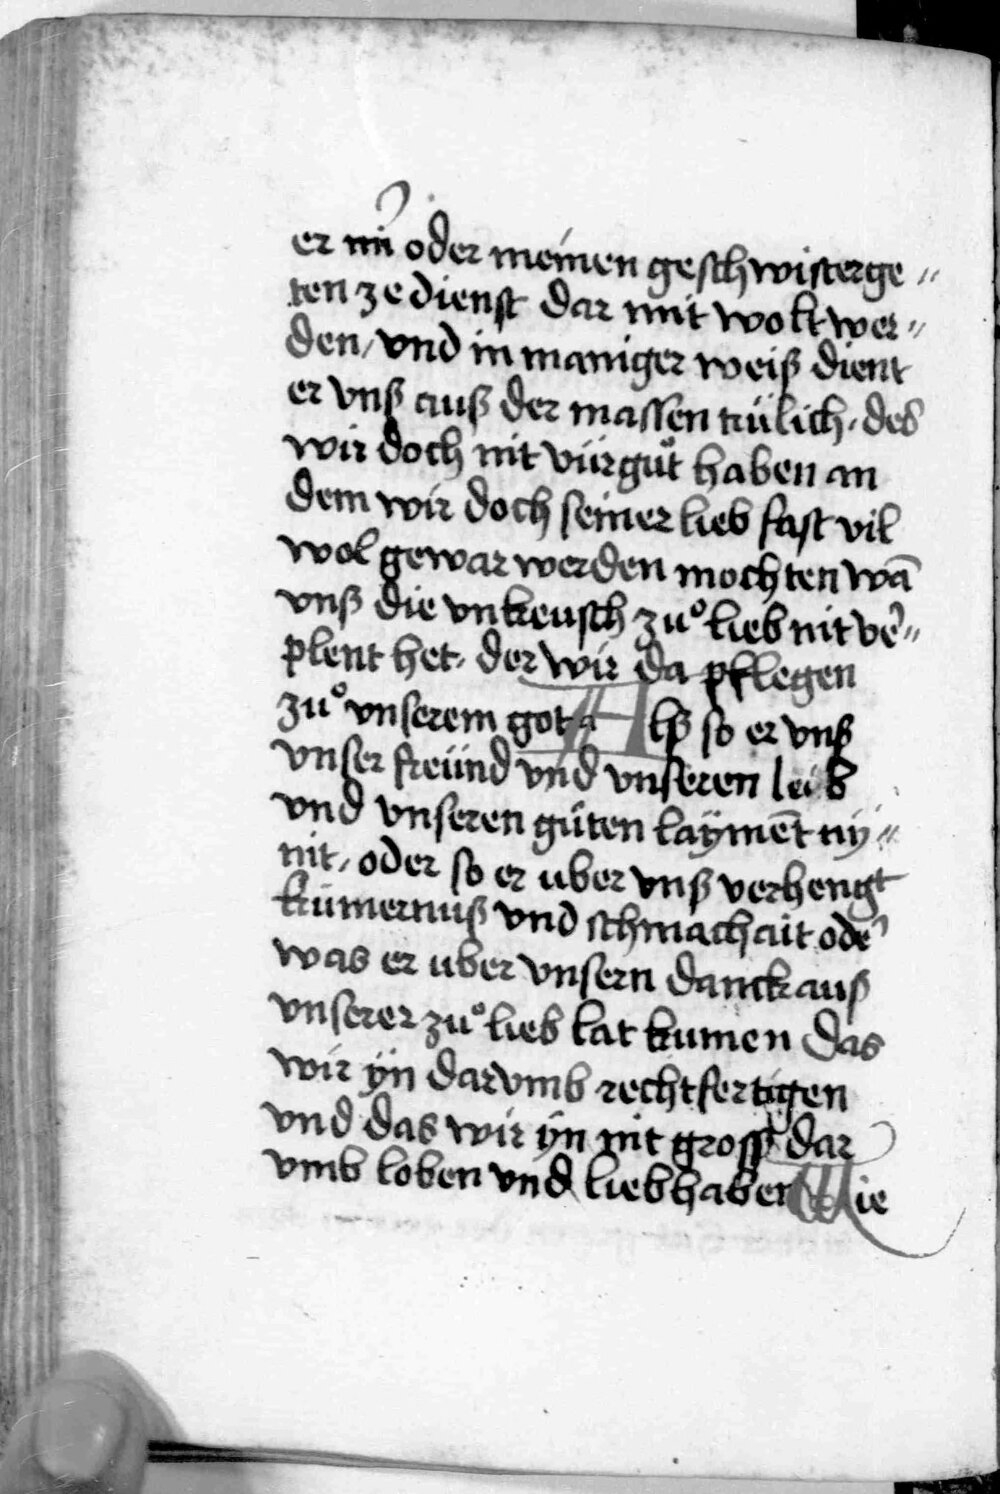 er mı̄ oder meinen geschwisterge〃
ten ze dienst dar mit wolt wer〃
den / vnd in maniger weiß dient
er vnß auß der massen trülich. des
wir doch nit vür gůt haben an
dem wir doch seiner lieb fast vil
wol gewar werden mochten wā
vnß die vnkeusch zuͦ lieb nit ve͛〃
plent het. der wir da pflegen
zuͦ vnserem got Alß so er vnß
vnser freünd vnd vnseren leib
vnd vnseren gůten laÿmēt nÿ〃
nit / oder so er uber vnß verhengt
kümernuß vnd schmachait ode͛
was er uber vnsern danck auß
vnserer zuͦ lieb lat kumen das
wir ÿn darvmb rechtfertigen
vnd das wir ÿn nit gross dar
vmb loben vnd lieb haben Wie